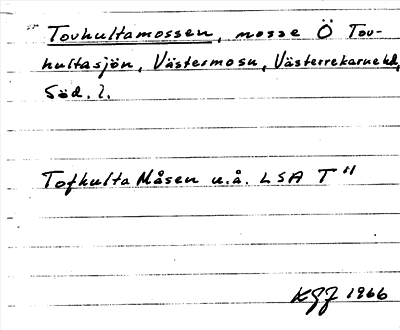 Tovhultamossen, mosse Ö Tov-
hultasjön, Västermosn, Västerrekarne hd,
Söd. l.
Tofhulta Måsen u.å. LSA T"
KGJ 1966